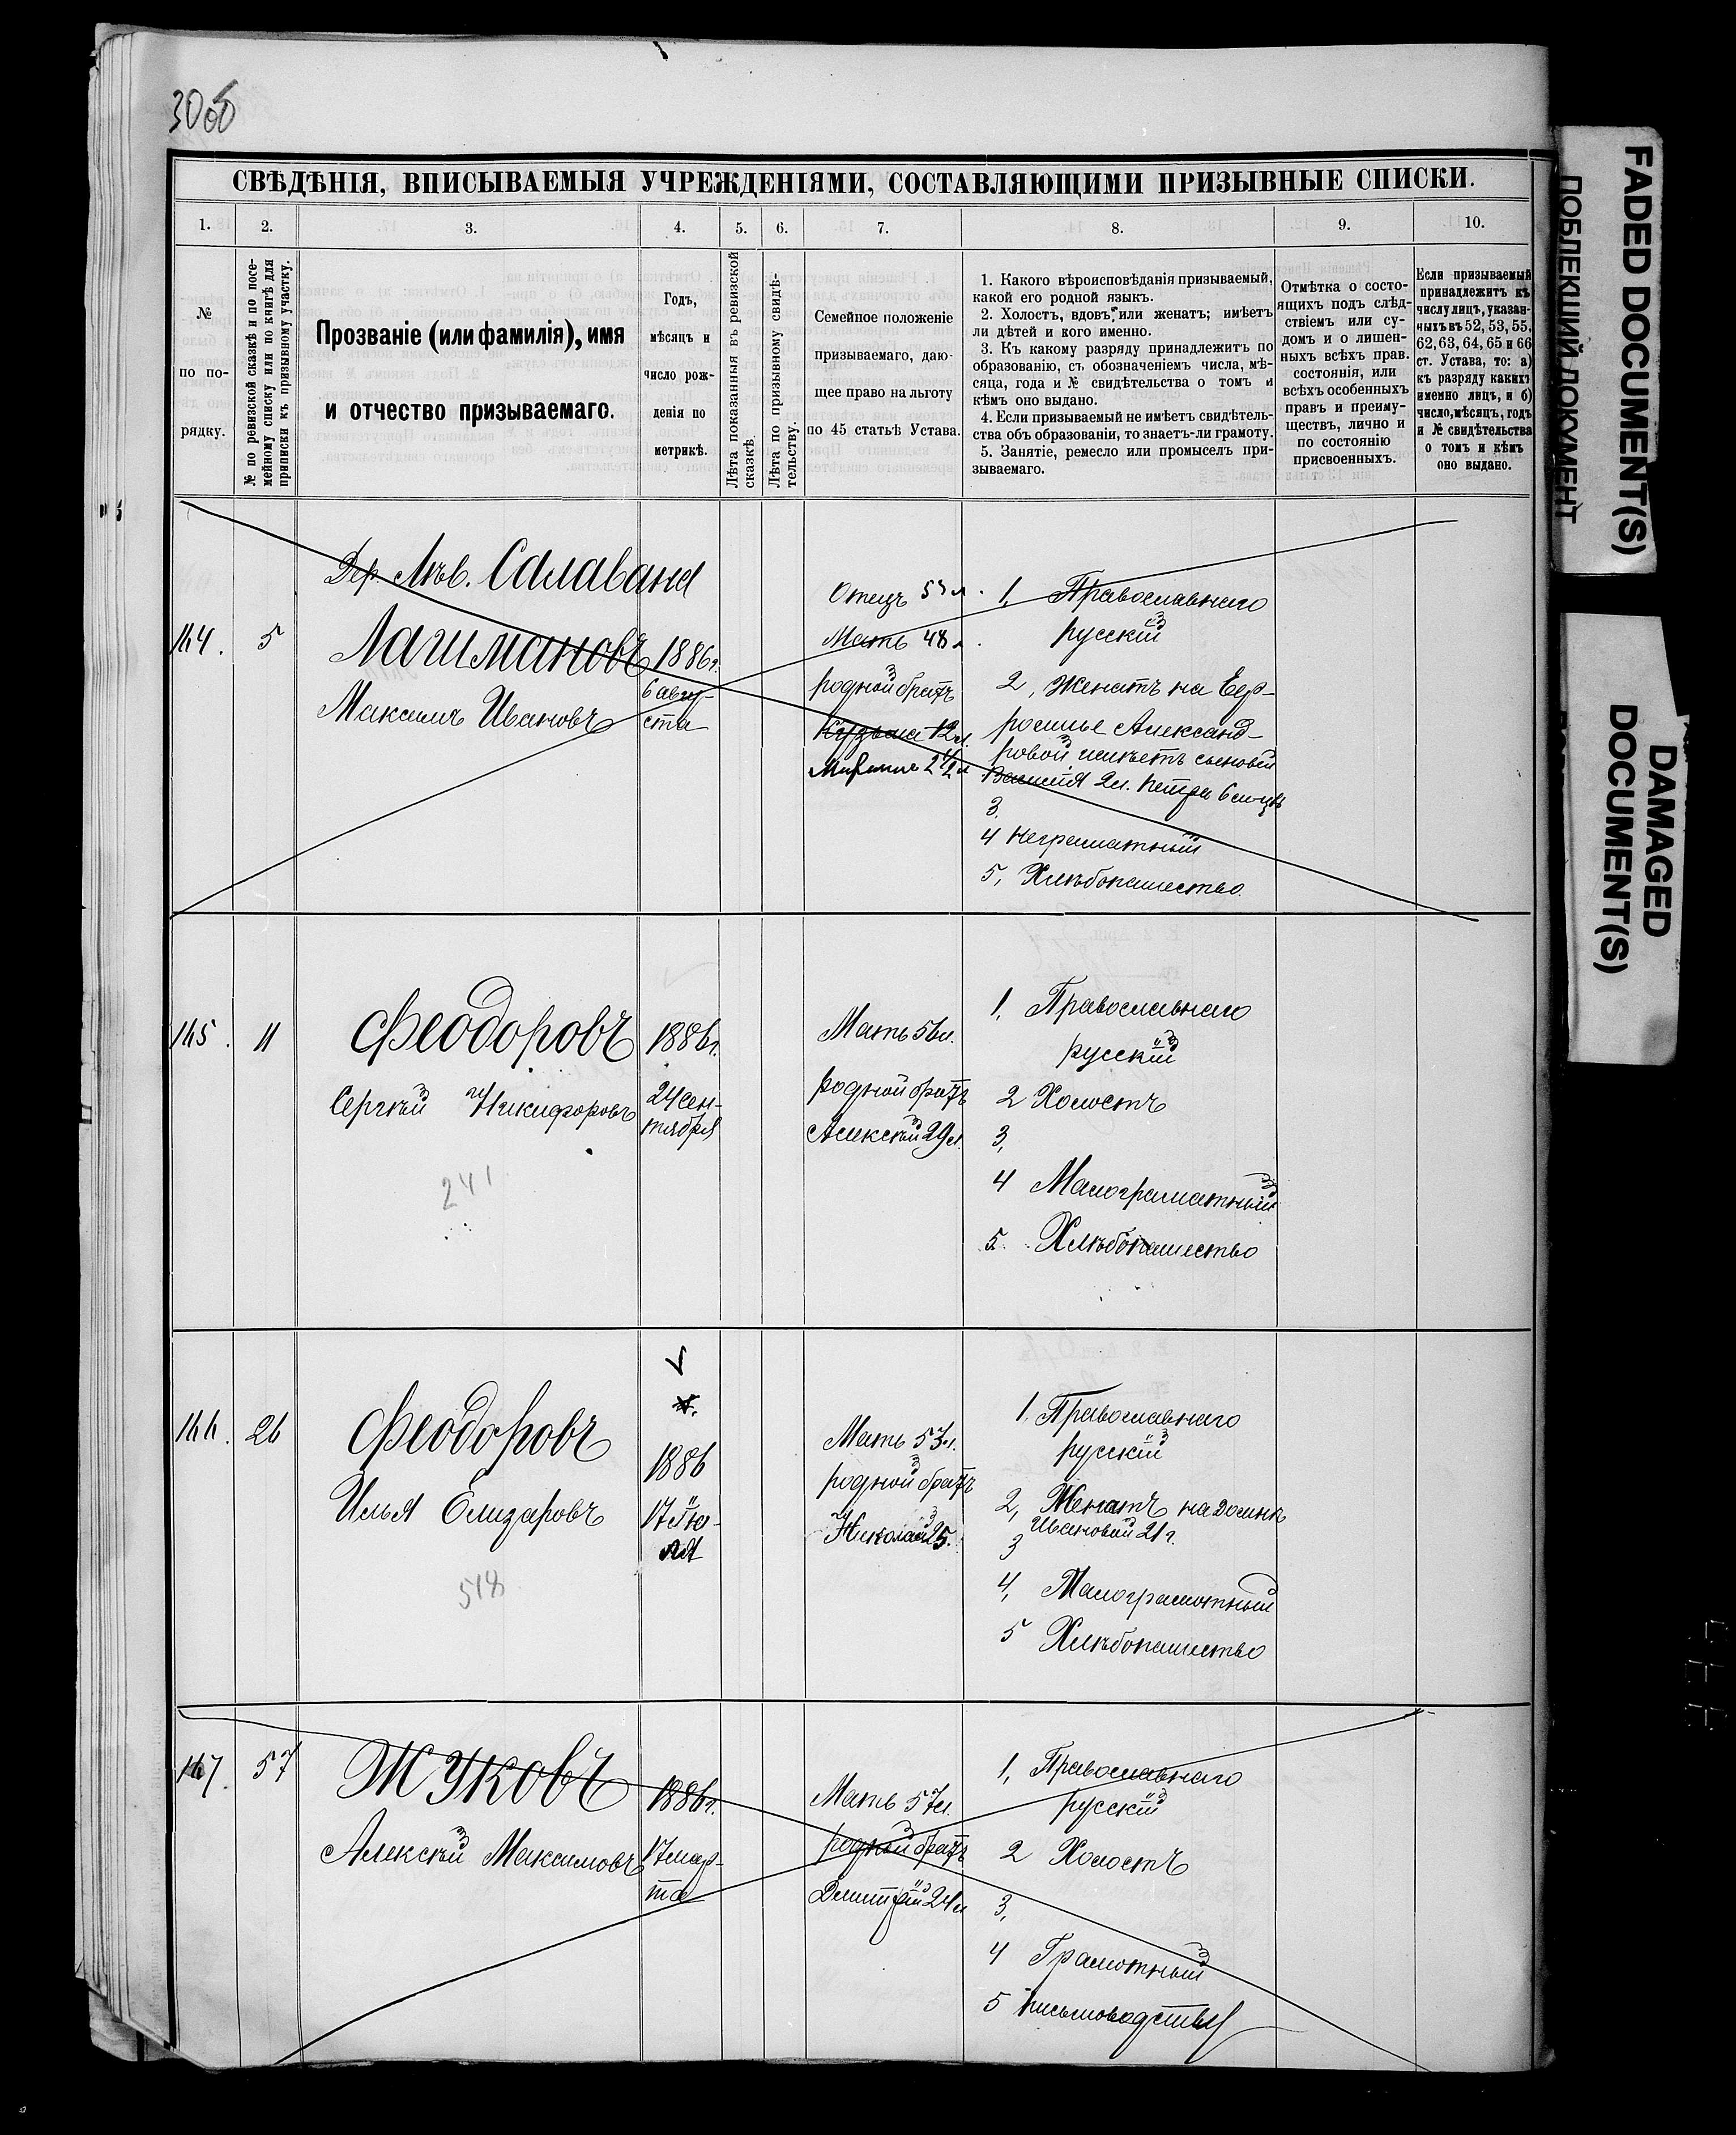 30об
СВѢДѢНІЯ, ВПИСЫВАЕМЫЯ УЧРЕЖДЕНІЯМИ, СОСТАВЛЯЮЩИМИ ПРИЗЫВНЫЕ СПИСКИ.
1. 2. 3. 4. 5. 6. 7. 8. 9. 10.
№
по по-
рядку.
№ по ревизской сказкѣ и по посе-
мейному списку или по книгѣ для
приписки къ призывному участку.
Прозваніе (или фамилія), имя
и отчество призываемаго.
Годъ,
мѣсяцъ и
число рож-
денія по
метрикѣ.
Лѣта показанныя въ ревизской
сказкѣ.
Лѣта по призывному свидѣ-
тельству.
Семейное положеніе
призываемаго, даю-
щее право на льготу
по 45 статьѣ Устава.
1. Какого вѣроисповѣданія призываемый,
какой его родной языкъ.
2. Холостъ, вдовъ, или женатъ; имѣетъ
ли дѣтей и кого именно.
3. Къ какому разряду принадлежитъ по
образованію, съ обозначеніемъ числа, мѣ-
сяца, года и № свидѣтельства о томъ и
кѣмъ оно выдано.
4. Если призываемый не имѣетъ свидѣтель-
ства объ образованіи, то знаетъ-ли грамоту.
5. Занятіе, ремесло или промыселъ при-
зываемаго.
Отмѣтка о состо-
ящихъ подъ слѣд-
ствіемъ или су-
домъ и о лишен-
ныхъ всѣхъ прав.
состоянія, или
всѣхъ особенныхъ
правъ и преиму-
ществъ, лично и
по состоянію
присвоенныхъ.
Если призываемый
принадлежитъ къ
числу лицъ, указан-
ныхъ въ 52, 53, 55,
62, 63, 64, 65 и 66
ст. Устава, то: а)
къ разряду какихъ
именно лицъ, и б)
число, мѣсяцъ, годъ
и № свидѣтельства
о томъ и кѣмъ
оно выдано.
Дер. Салавана
164. 5
Лашмановъ
Максимъ Ивановъ
1886г.
6 авгу-
ста
Отецъ 53 л.
Мать 48 л.
родной братъ
Кузьма 12 л.
1, Православнаго
русскій
2, Женатъ на Евр-
росинье Александ-
ровой имѣетъ сыновей
Василія 2л. Петра 6 м-цвъ
3,
4 Неграматный
5, Хлѣбопашество.
165. 11
Феодоровъ
Сергѣй Никифоровъ
241
1886г.
24 сен-
тября
Мать 56л.
родной братъ
Алексѣй 29л.
1, Православнаго
русскій
2 Холостъ
3,
4 Малограматный
5. Хлѣбопашество
166. 26
Феодоровъ
Илья Елизаровъ
518
1886
17 Ію-
ля
Мать 53л.
родной братъ
Николай 25.
1, Православнаго
русскій
2, Женатъ на Домнѣ
Ивановой 21г.
3
4, Малограмотный
5 Хлѣбопашество
167. 57
Жуковъ
Алексѣй Максимовъ
1886г.
17 мар-
та
Мать 57л.
родной братъ
Дмитрій 24л
1, Православнаго
русскій
2 Холостъ
3,
4 Грамотный
5 Письмоводства
FADED DOCUMENT(S)
ПОБЛЕКШИЙ ДОКУМЕНТ
DAMAGED
DOCUMENT(S)